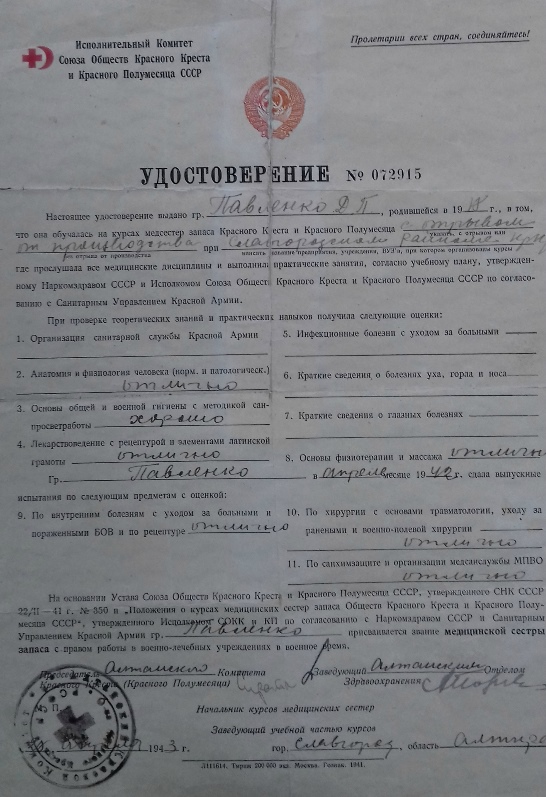 Исполнительный Комитет
Союза Обществ Красного Креста
и Красного Полумесяца СССР
Пролетарии всех стран, соединяйтесь!
УДОСТОВЕРЕНИЕ № 072915
Настоящее удостоверение выдано гр. Павленко Д П, родившейся в 19 г., в том,
что она обучалась на курсах медсестер запаса Красного Креста и Красного Полумесяца с отрывом
от производства при Славгородском
где прослушала все медицинские дисциплины и выполнила практические занятия, согласно учебному плану, утвержден-
ному Наркомздравом СССР и Исполкомом Союза Обществ Красного Креста и Красного Полумесяца СССР по согласо-
ванию с Санитарным Управлением Красной Армии.
При проверке теоретических знаний и практических навыков получила следующие оценки:
1. Организация санитарной службы Красной Армии
2. Анатомия и физиология человека (норм. и патологическ.)
отлично
3. Основы общей и военной гигиены с методикой сан-
просветработы хорошо
4. Лекарствоведение с рецептурой и элементами латинской
грамоты отлично
5. Инфекционные болезни с уходом за больными
6. Краткие сведения о болезнях уха, горла и носа
7. Краткие сведения о глазных болезнях
8. Основы физиотерапии и массажа отлично
Гр. Павленко в апреле месяце 1942 г. сдала выпускные
испытания по следующим предметам с оценкой:
9. По внутренним болезням с уходом за больными и
пораженными БОВ и по рецептуре отлично
10. По хирургии с основами травматологии, уходу за
ранеными и военно-полевой хирургии
отлично
11. По санхимзащите и организации медсанслужбы МПВО
отлично
На основании Устава Союза Обществ Красного Креста и Красного Полумесяца СССР, утвержденного СНК СССР
22/II—41 г. № 350 и "Положения о курсах медицинских сестер запаса Обществ Красного Креста и Красного Полу-
месяца СССР", утвержденного Исполкомом СОКК и КП по согласованию с Наркомздравом СССР и Санитарным
Управлением Красной Армии гр. Павленко присваивается звание медицинской сестры
запаса с правом работы в военно-лечебных учреждениях в военное время.
Председатель Алтайского Комитета
Красного Креста (Красного Полумесяца)
Заведующий Алтайским Отделом
Здравоохранения
М. П.
Начальник курсов медицинских сестер
Заведующий учебной частью курсов
1943 г.
гор. Славгород, область
Л111614. Тираж 200 000 экз. Москва. Гознак. 1941.